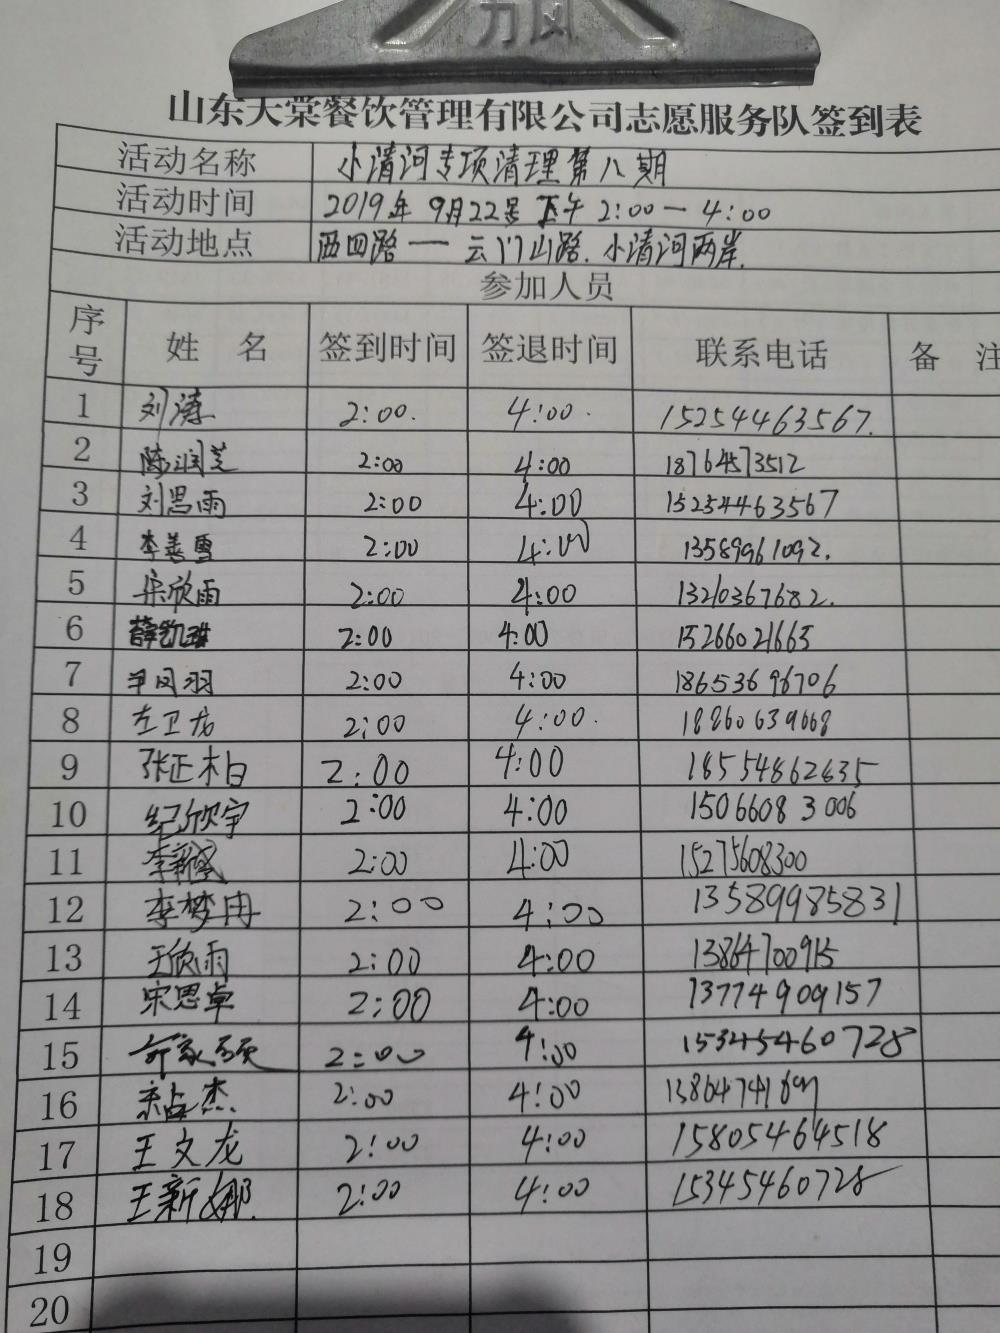 力风
山东天棠餐饮管理有限公司志愿服务队签到表
活动名称 小清河专项清理第八期
活动时间 2019年 9月22号 下午 2:00一4:00
活动地点 西四路 一 云门山路.小清河两岸.
参加人员
序号 姓 名 签到时间 签退时间 联系电话 备 注
1 刘涛 2:00. 4:00. 15254463567.
2 陈润芝 2:00 4:00 18764573512
3 刘思雨 2:00 4:00 15254463567
4 李善雪 2:00 4:00 13589961092.
5 宋欣雨 2:00 4:00 13210367682.
6 薛凯琳 2:00 4:00 15266021665
7 2:00 4:00 18653696706
8 左卫龙 2:00 4:00. 18860639668
9 张正柏 2:00 4:00 18554862635
10 纪欣宇 2:00 4:00 15066083006
11 2:00 4:00 15275608300
12 李梦冉 2:00 4:00 13589985831
13 王欣雨 2:00 4:00 13864700915
14 宋思卓 2:00 4:00 13774909157
15 2:00 4:00 15345460728
16 宋占杰 2:00 4:00
17 王文龙 2:00 4:00 15805464518
18 王新娜. 2:00 4:00 15345460728
19
20